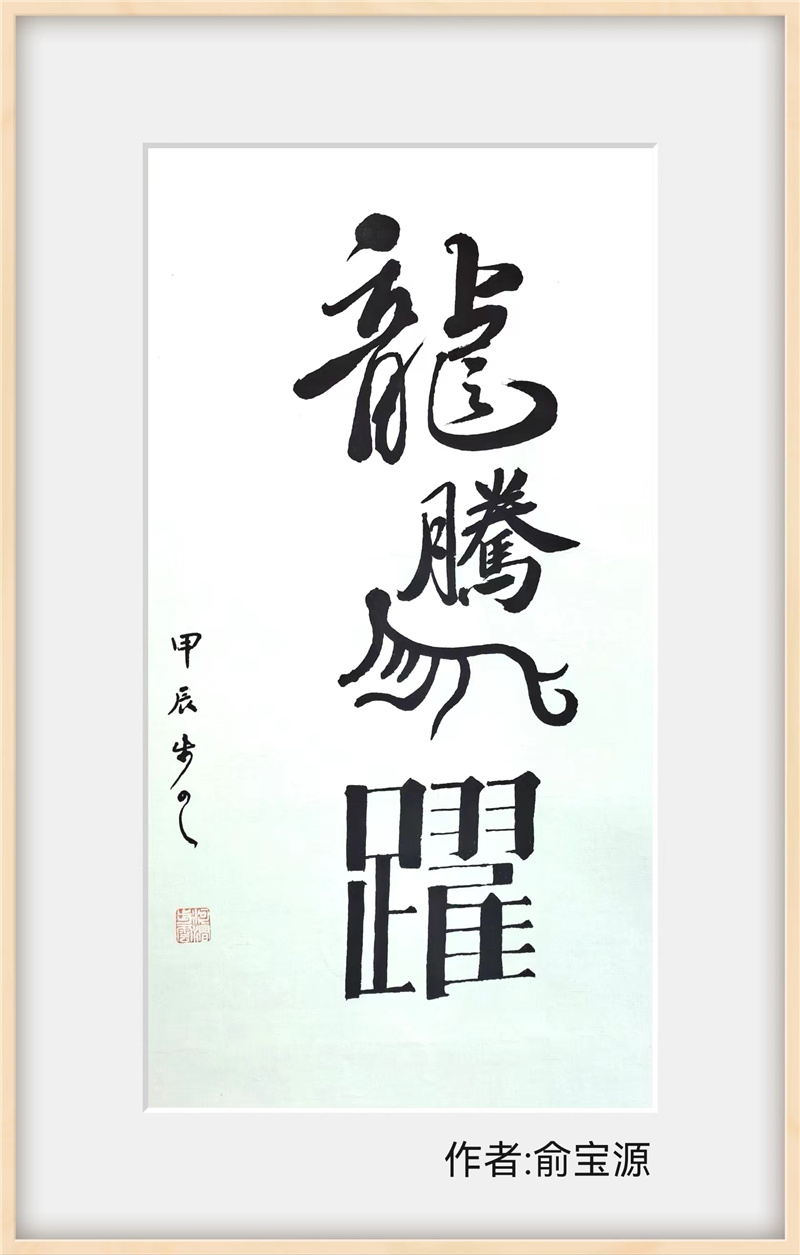 龍騰虎躍
甲辰
作者:俞宝源